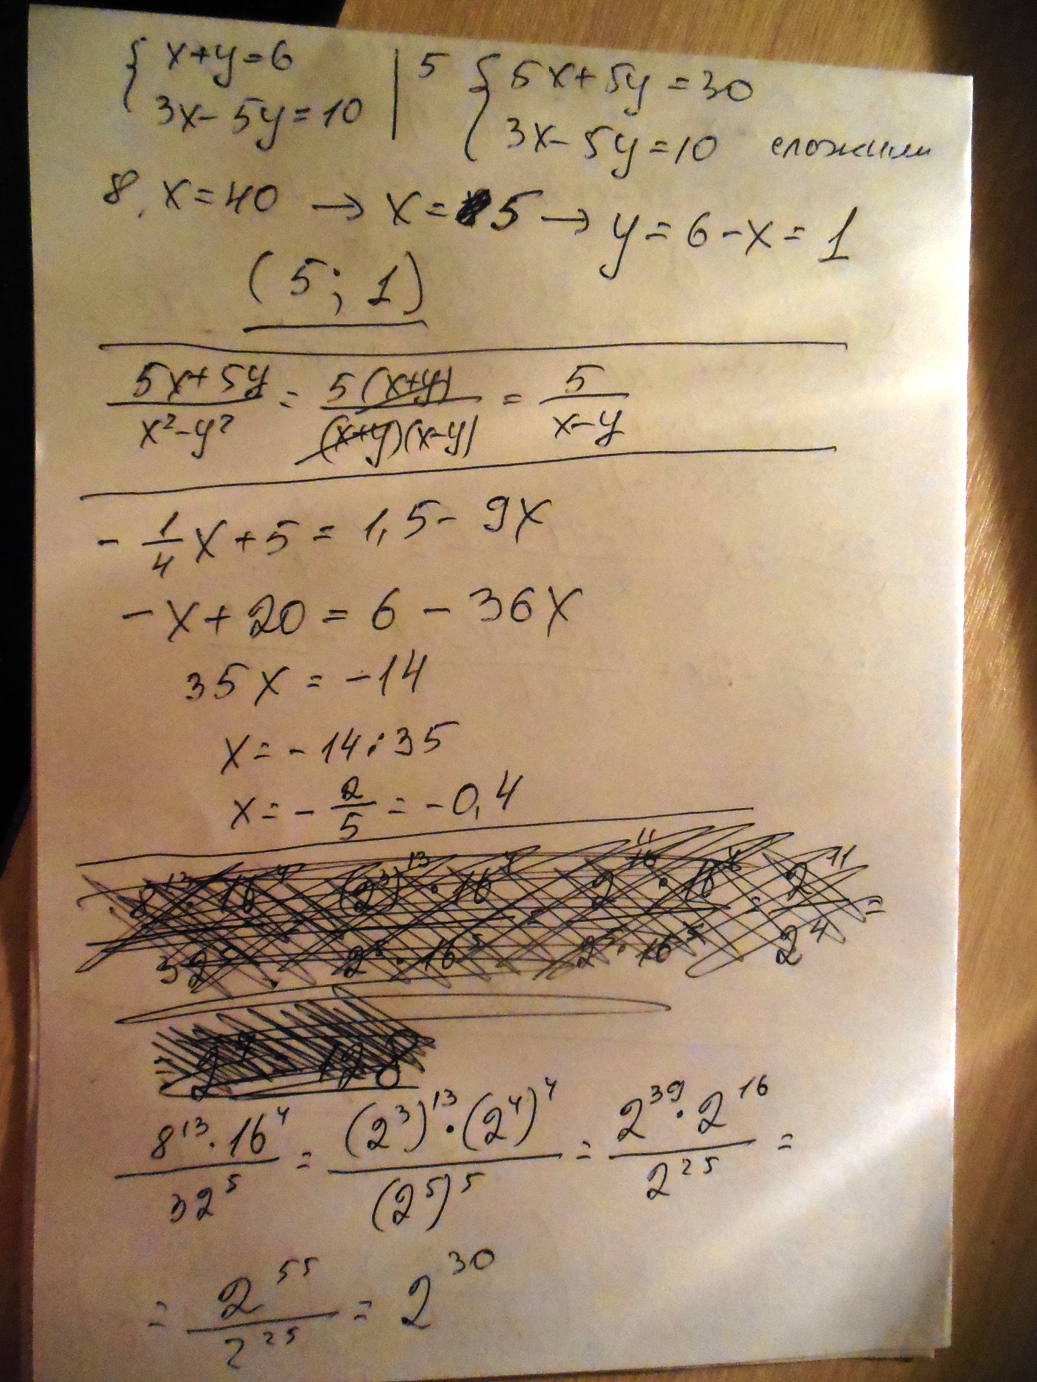 { x+y=6 | 5 { 5x+5y=30
3x-5y=10 | 3x-5y=10 сложим
8x=40 → x=5 → y=6-x=1
(5; 1)
(5x+5y)/(x²-y²) = 5(x+y)/((x+y)(x-y)) = 5/(x-y)
-1/4x+5=1,5-9x
-x+20=6-36x
35x=-14
x=-14:35
x=-2/5=-0,4
(8¹³·16⁴)/32⁵ = ((2³)¹³·(2⁴)⁴)/(2⁵)⁵ = (2³⁹·2¹⁶)/2²⁵ =
= 2⁵⁵/2²⁵ = 2³⁰